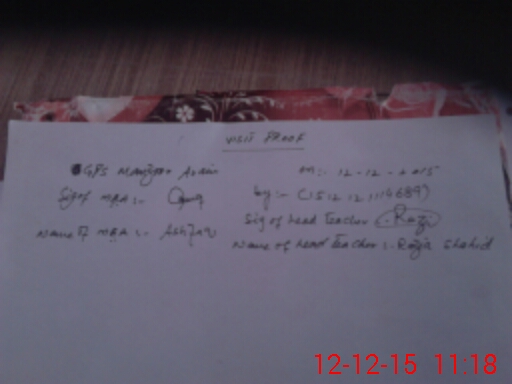 VISIT PROOF
GPS Manzoor Arain on:- 12-12-2015
Sig of MEA:- by:-
Sig of head Teacher Razi
Name of MEA:- Ashfaq
Name of head Teacher:- Razia Shahid
12-12-15 11:18